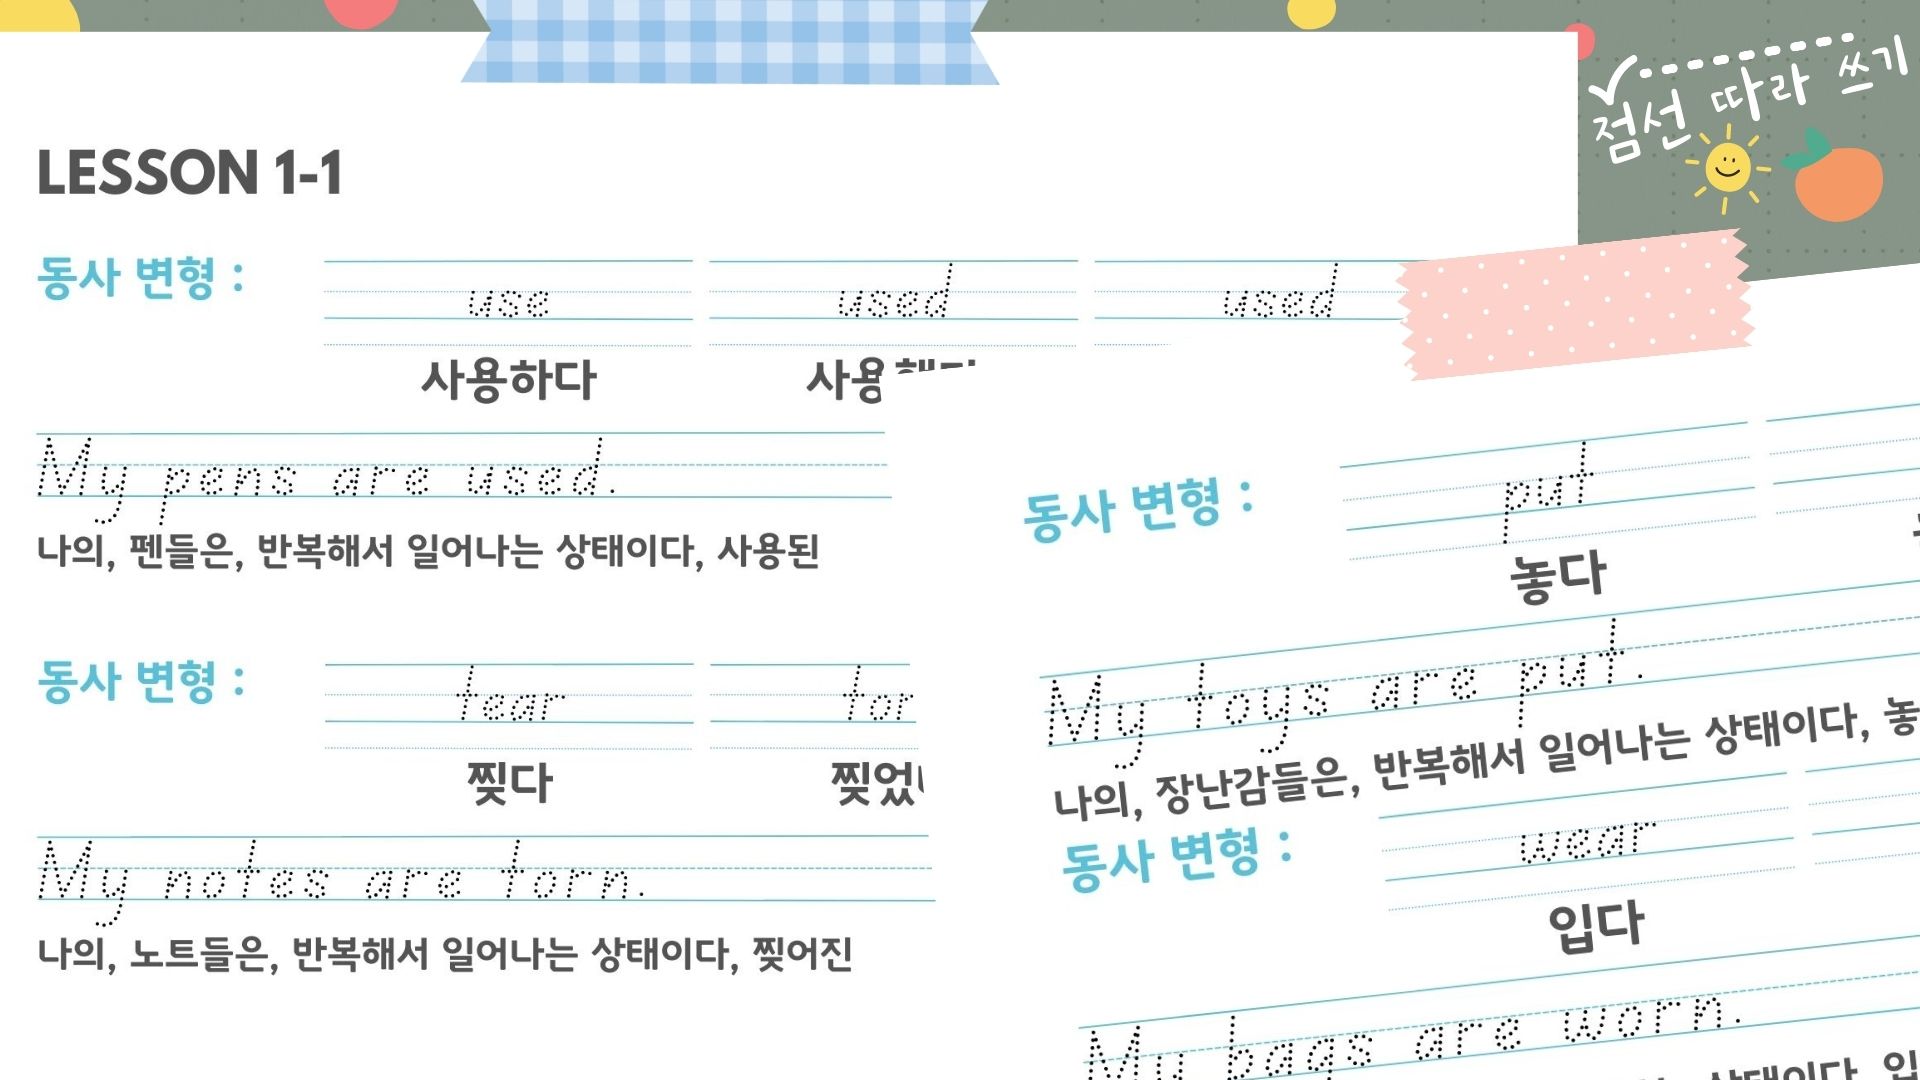 점선 따라 쓰기
LESSON 1-1
동사 변형 : use used used
사용하다 사용했다
My pens are used.
나의, 펜들은, 반복해서 일어나는 상태이다, 사용된
동사 변형 : tear tor
찢다 찢었
My notes are torn.
나의, 노트들은, 반복해서 일어나는 상태이다, 찢어진
동사 변형 : put
놓다
My toys are put.
나의, 장난감들은, 반복해서 일어나는 상태이다, 놓
동사 변형 : wear
입다
My bags are worn.
상태이다, 입